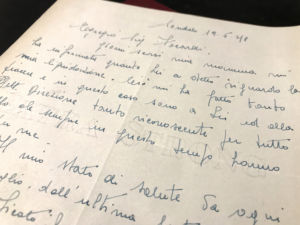 19.5.42
Egregio Sig.
giorni scorsi mia mamma mi
ha informato quanto Lei a detto riguardo la
mia liquidazione. Lei mi ha fatto tanto
piacere e in questo caso sono a Lei ed alla
Spett. Direzione tanto riconoscente per tutto
che sempre in questo tempo hanno
me
Il mio stato di salute va ogni
meglio dall'ultima